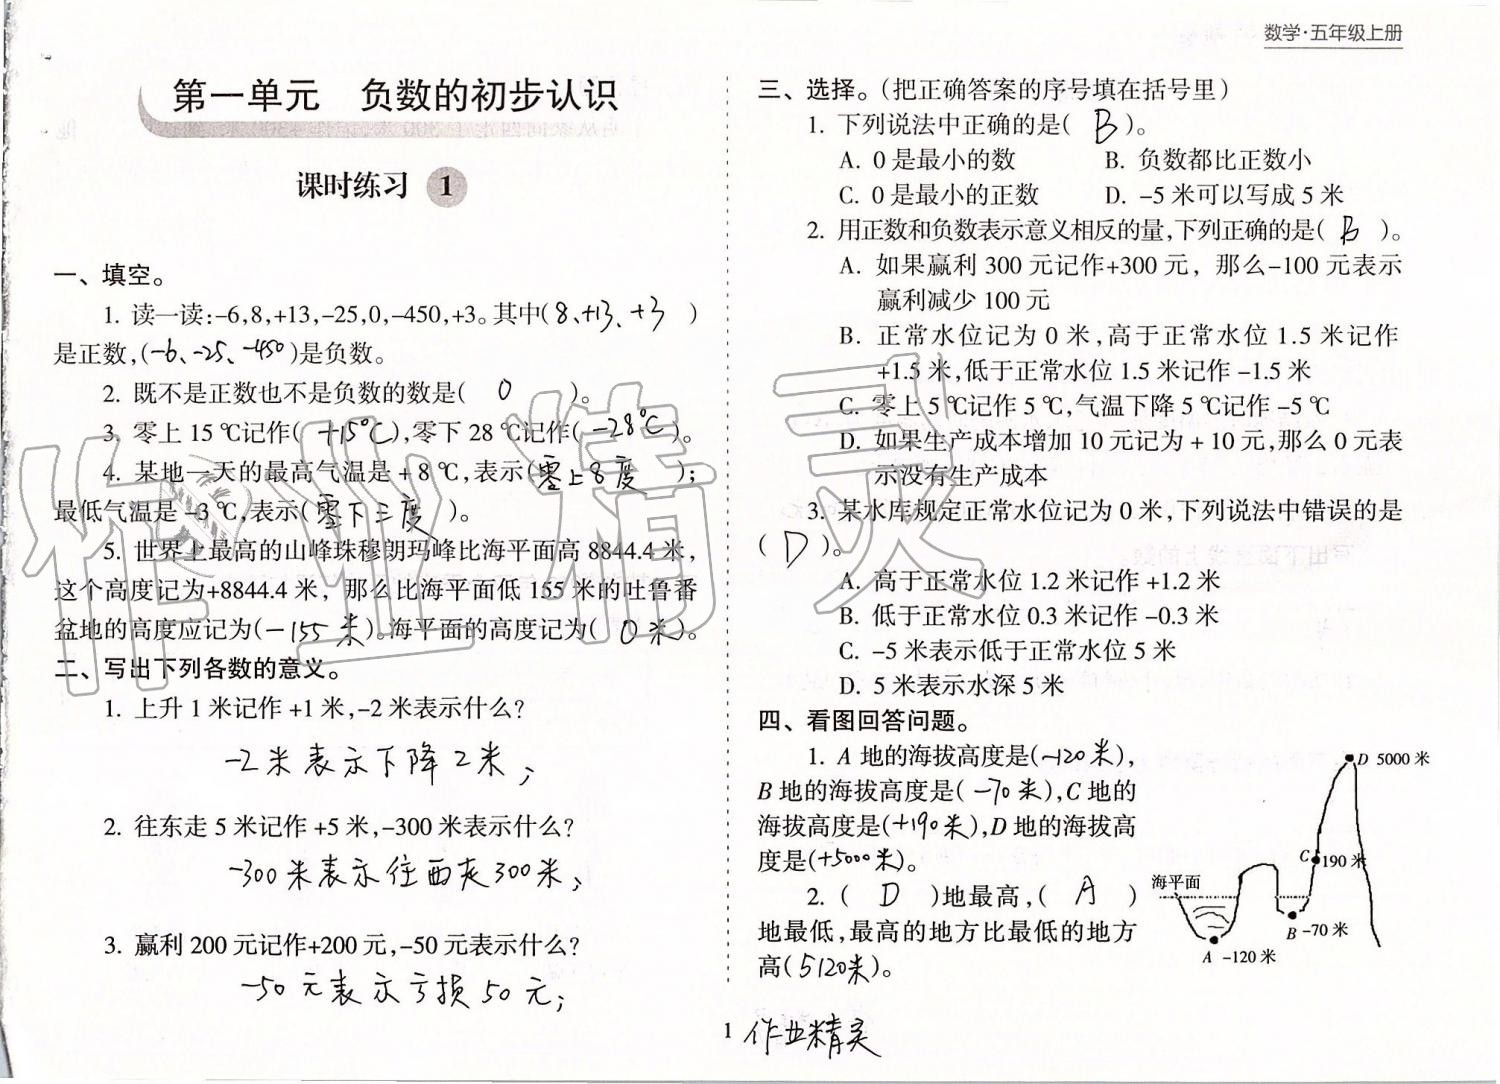 数学·五年级上册
第一单元　负数的初步认识
课时练习 1
一、填空。
1. 读一读:-6,8,+13,-25,0,-450,+3。其中( 8、+13、+3 )
是正数,(-6、-25、-450)是负数。
2. 既不是正数也不是负数的数是( 0 )。
3. 零上 15 ℃记作( +15℃ ),零下 28 ℃记作( -28℃ )。
4. 某地一天的最高气温是 + 8 ℃,表示(零上8度 );
最低气温是 -3 ℃,表示(零下三度 )。
5. 世界上最高的山峰珠穆朗玛峰比海平面高 8844.4 米,
这个高度记为+8844.4 米，那么比海平面低 155 米的吐鲁番
盆地的高度应记为(-155米)。海平面的高度记为( 0米)。
二、写出下列各数的意义。
1. 上升 1 米记作 +1 米,-2 米表示什么?
-2米表示下降2米;
2. 往东走 5 米记作 +5 米,-300 米表示什么?
-300米表示往西走300米;
3. 赢利 200 元记作+200 元,-50 元表示什么?
-50元表示亏损50元;
三、选择。(把正确答案的序号填在括号里)
1. 下列说法中正确的是( B )。
A. 0 是最小的数　B. 负数都比正数小
C. 0 是最小的正数　D. -5 米可以写成 5 米
2. 用正数和负数表示意义相反的量,下列正确的是( B )。
A. 如果赢利 300 元记作+300 元，那么-100 元表示
赢利减少 100 元
B. 正常水位记为 0 米,高于正常水位 1.5 米记作
+1.5 米,低于正常水位 1.5 米记作 -1.5 米
C. 零上 5 ℃记作 5 ℃,气温下降 5 ℃记作 -5 ℃
D. 如果生产成本增加 10 元记为 + 10 元,那么 0 元表
示没有生产成本
3. 某水库规定正常水位记为 0 米,下列说法中错误的是
( D )。
A. 高于正常水位 1.2 米记作 +1.2 米
B. 低于正常水位 0.3 米记作 -0.3 米
C. -5 米表示低于正常水位 5 米
D. 5 米表示水深 5 米
四、看图回答问题。
1. A 地的海拔高度是(-120米),
B 地的海拔高度是( -70米),C 地的
海拔高度是(+190米),D 地的海拔高
度是(+5000米)。
2. ( D )地最高,( A )
地最低,最高的地方比最低的地方
高(5120米)。
D 5000 米
C 190 米
海平面
B -70 米
A -120 米
1
作业精灵
作业精灵